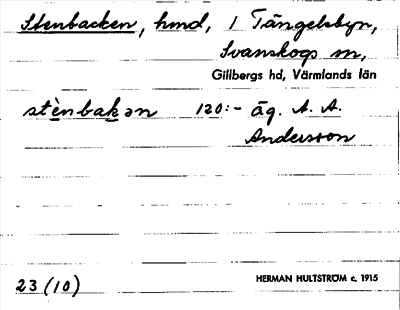 Stenbacken, hmd, i Tängelsbyn,
Svanskogs sn,
Gillbergs hd, Värmlands län
stènbakən 120:- äg. A. A.
Andersson
23 (10)
HERMAN HULTSTRÖM c. 1915